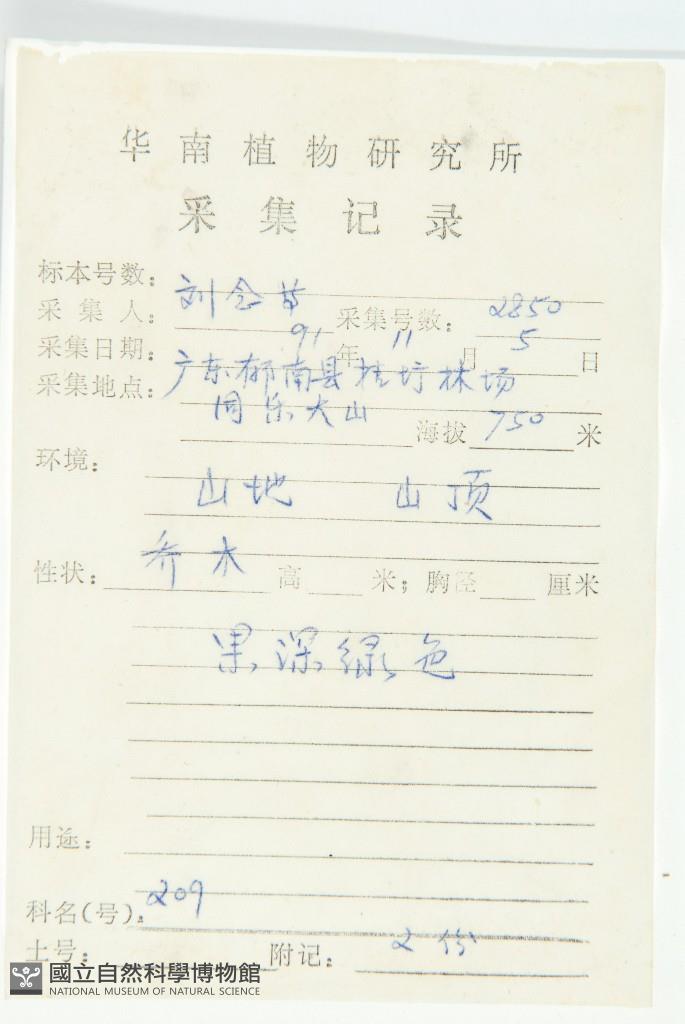 华南植物研究所
采集记录
标本号数:
采集人: 刘念 采集号数: 2850
采集日期: 91年 11月 5日
采集地点: 广东郁南县桂圩林场
同乐大山 海拔 750 米
环境:
山地 山顶
性状: 乔木 高 米; 胸径 厘米
果深绿色
用途:
科名(号): 209
土号: 附记: 2份
國立自然科學博物館
NATIONAL MUSEUM OF NATURAL SCIENCE